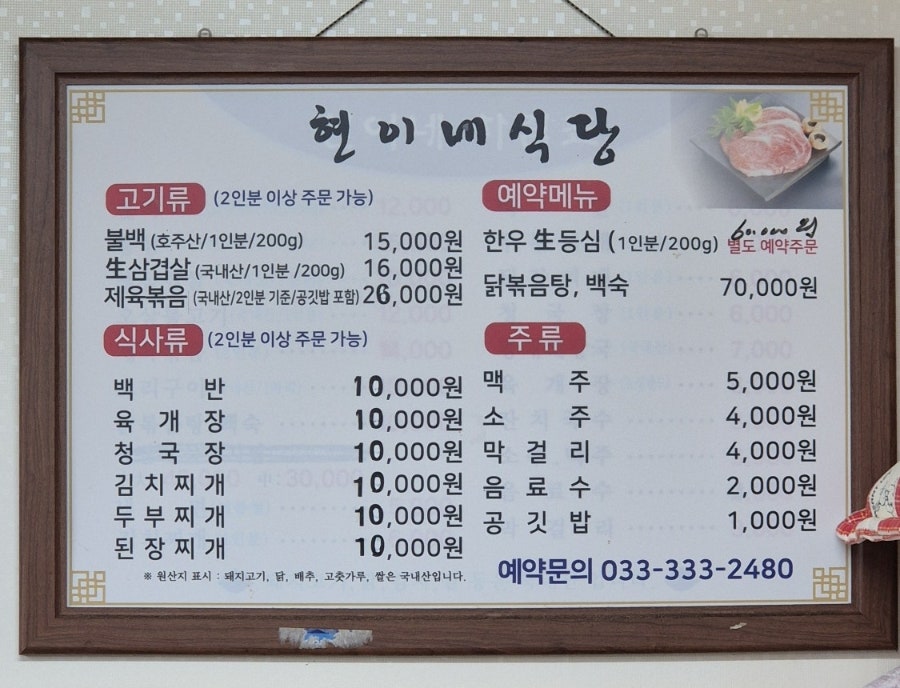 현이네식당
고기류 (2인분 이상 주문 가능)
불백 (호주산/1인분/200g) 15,000원
生삼겹살 (국내산/1인분 /200g) 16,000원
제육볶음 (국내산/2인분 기준/공깃밥 포함) 26,000원
식사류 (2인분 이상 주문 가능)
백반 10,000원
육개장 10,000원
청국장 10,000원
김치찌개 10,000원
두부찌개 10,000원
된장찌개 10,000원
※ 원산지 표시 : 돼지고기, 닭, 배추, 고춧가루, 쌀은 국내산입니다.
예약메뉴
60,000원
한우 生등심 (1인분/200g) 별도 예약주문
닭볶음탕, 백숙 70,000원
주류
맥주 5,000원
소주 4,000원
막걸리 4,000원
음료수 2,000원
공깃밥 1,000원
예약문의 033-333-2480